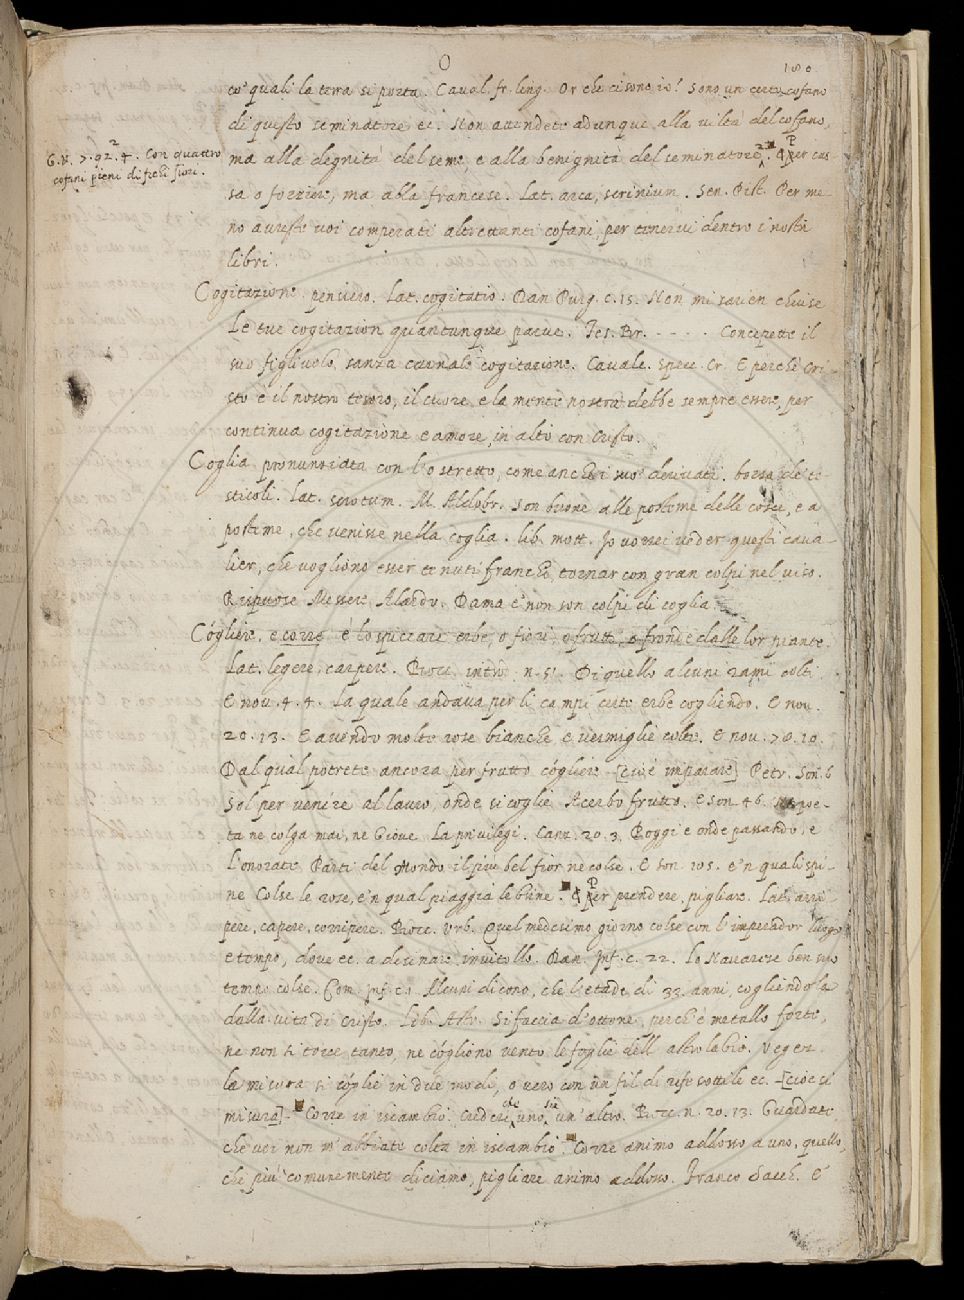 O
180
co' quali la terra si porta. Caval. fr. ling. Or che ci sono io? Sono un certo cofano
di questo seminatore ec. Non attendete adunque alla viltà del cofano,
ma alla degnità del seme, e alla benignità del seminatore. ¶ Per cas-
G. V. 7. 92. 4. Con quattro
cofani pieni di fichi fiori.
sa o forziere, ma alla francese. Lat. arca, scrinium. Sen. Pist. Per me-
no avreste voi comperati altrettanti cofani, per tenervi dentro i nostri
libri.
Cogitazione. pensiero. Lat. cogitatio. Dan. Purg. c. 15. Non mi sarien chiuse
Le tue cogitazion quantunque parve. Tes. Br. - - - - - Concepette il
suo figliuolo, sanza carnale cogitazione. Cavalc. specc. cr. E perchè Cri-
sto è il nostro tesoro, il cuore, e la mente nostra debbe sempre essere, per
continua cogitazione e amore, in alto con Cristo.
Coglia pronunziata con l'o stretto, come anche i suo' derivati. borsa de' te-
sticoli. Lat. scrotum. M. Aldobr. Son buone alle posteme delle cosce, e a
posteme, che venisse nella coglia. lib. mott. Io vorrei veder questi cava-
lier, che vogliono esser tenuti franchi, tornar con gran colpi nel viso.
Rispuose Messere Alardo. Dama e' non son colpi di coglia.
Cógliere, e corre è lo spiccare erbe, o fiori, o frutti, o fronde dalle lor piante.
Lat. legere, carpere. Bocc. introd. n. 51. Di quello alcuni rami colti.
E nov. 4. 4. La quale andava per li campi certe erbe cogliendo. E nov.
20. 13. E avendo molte rose bianche e vermiglie colte. E nov. 70. 10.
Dal qual potrete ancora per frutto cógliere [cioè imparare] Petr. Son. 6
Sol per venire al lauro, onde si coglie Acerbo frutto. E son. 46. Nè poe-
ta ne colga mai, ne Giove La privilegi. Canz. 20. 3. Poggi e onde passando, e
L'onorate Parti del Mondo il più bel fior ne colse. E son. 205. e 'n quali spi-
ne Colse le rose, e 'n qual piaggia le brine. ¶ Per prendere, pigliare. Lat. arri-
pere, capere, corripere. Bocc. Urb. Quel medesimo giorno colse con l'imperador luogo
e tempo, dove ec. a desinare invitollo. Dan. Inf. c. 22. Lo Navarrese ben suo
tempo colse. Com. Inf. c. 1. Alcuni dicono, che l'etade di 33. anni, cogliendola
dalla vita di Cristo. Lib. Astr. Si faccia d'ottone, perch'è metallo forte,
ne non si torce tanto, ne cógliono vento le foglie dell'astrolabio. Veget.
la misura si cóglie in due modi, o vero con un fil di refe sottile ec. [cioè si
misura]. Corre in iscambio. Credere che uno sie un'altro. Bocc. n. 20. 13. Guardate
che voi non m'abbiate colta in iscambio. Corre animo addosso a uno, quello,
che più comunemente diciamo, pigliare animo addosso. Franco Sacch. E